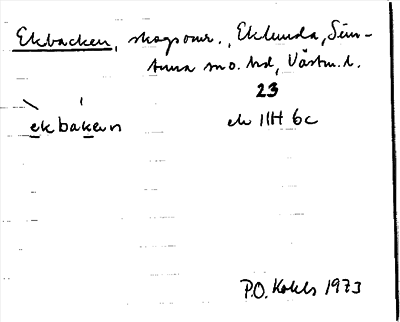 Ekbacken, skogsomr., Eklunda, Sim-
tuna sn o. hd, Västm. l.
23
ekbaken ek 11H 6c
P.O. Kohls 1973